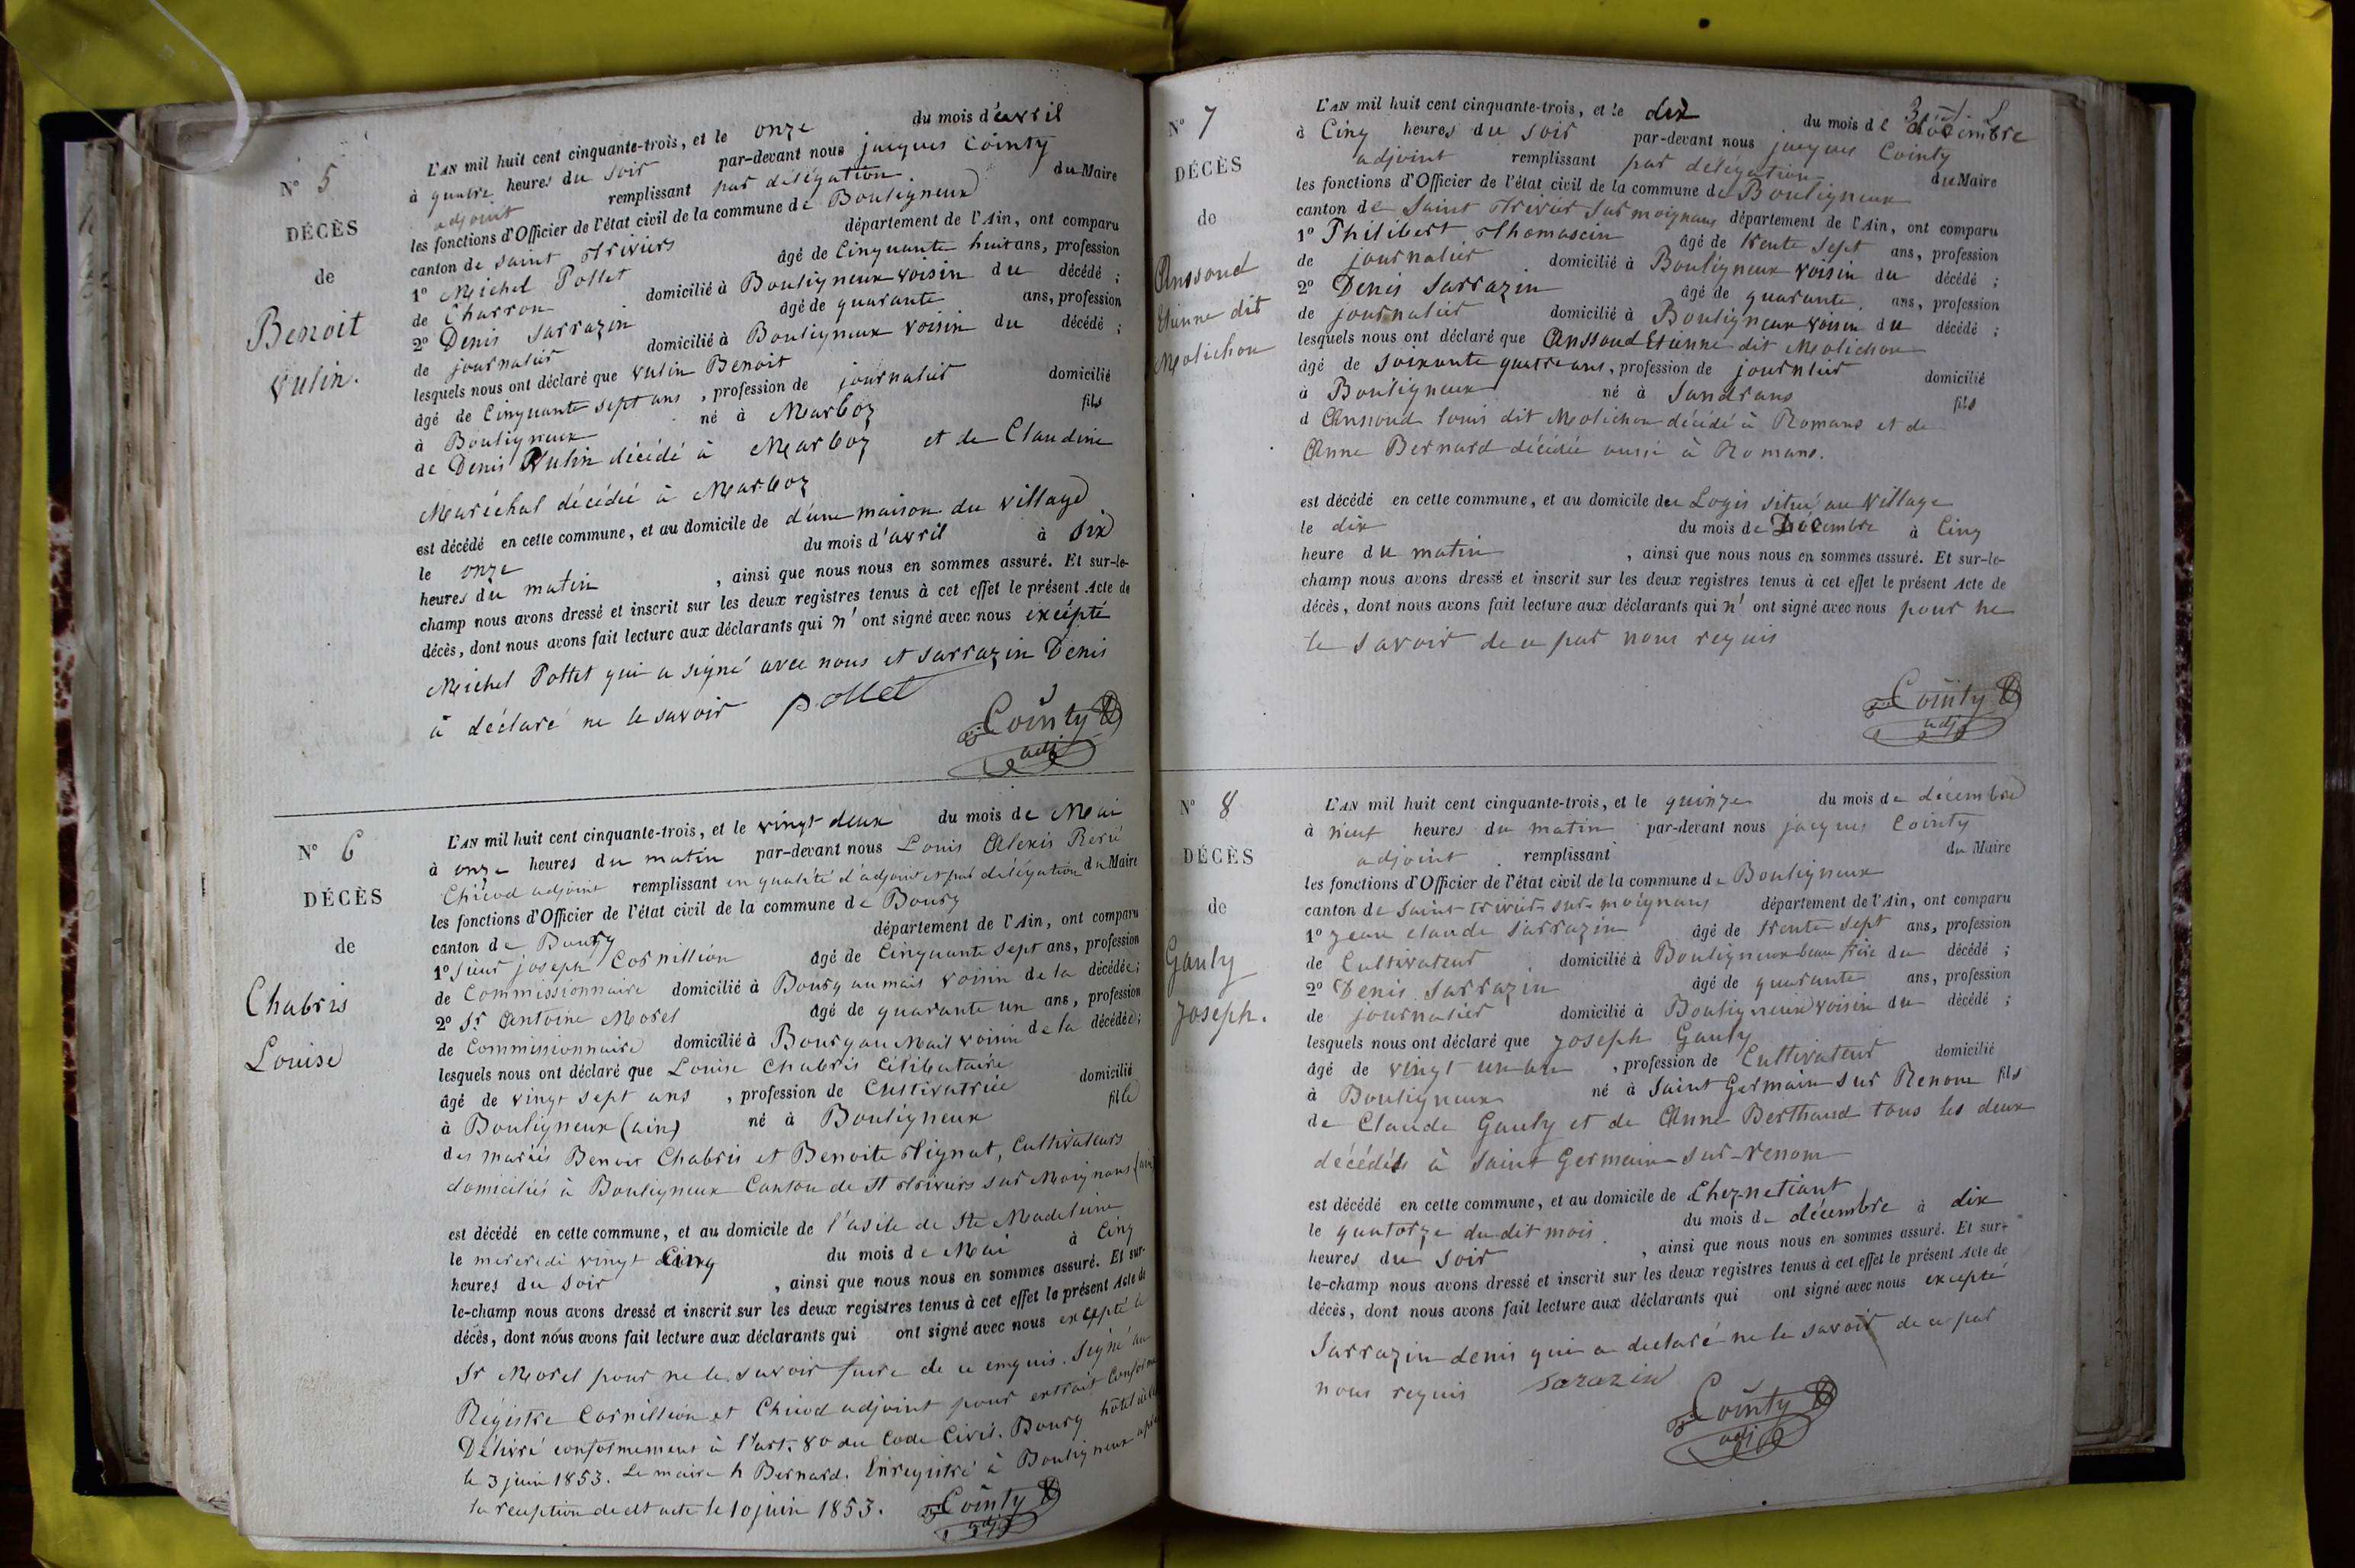 N° 5
DÉCÈS
de
Benoit
Vulin.
L'AN mil huit cent cinquante-trois, et le onze du mois d'avril
à quatre heures du soir par-devant nous jacques Cointy
adjoint remplissant par délégation du Maire
les fonctions d'Officier de l'état civil de la commune de Bouligneux
canton de saint trivier département de l'Ain, ont comparu
1° Michel Pollet âgé de Cinquante huit ans, profession
de Charron domicilié à Bouligneux voisin du décédé ;
2° Denis Sarrazin âgé de quarante ans, profession
de journalier domicilié à Bouligneux voisin du décédé ;
lesquels nous ont déclaré que Vulin Benoit
âgé de Cinquante sept ans , profession de journalier domicilié
à Bouligneux né à Marboz fils
de Denis Vulin décédé à Marboz et de Claudine
Maréchal décédée à Marboz
est décédé en cette commune, et au domicile de d'une maison du village
le onze du mois d'avril à six
heures du matin , ainsi que nous nous en sommes assuré. Et sur-le-
champ nous avons dressé et inscrit sur les deux registres tenus à cet effet le présent Acte de
décès, dont nous avons fait lecture aux déclarants qui n' ont signé avec nous excépté
Michel Pollet qui a signé avec nous et sarrazin Denis
à déclaré ne le savoir pollet
Cointy
adj
N° 6
DÉCÈS
de
Chabris
Louise
L'AN mil huit cent cinquante-trois, et le vingt deux du mois de Mai
à onze heures du matin par-devant nous Louis Alexis René
Chicod adjoint remplissant en qualité d'adjoint et par délégation du Maire
les fonctions d'Officier de l'état civil de la commune de Bourg
canton de Bourg département de l'Ain, ont comparu
1° Sieur joseph Cornillion âgé de Cinquante sept ans, profession
de Commissionnaire domicilié à Bourg au mais voisin de la décédée ;
2° Sr Antoine Morel âgé de quarante un ans, profession
de Commissionnaire domicilié à Bourg au Mail voisin de la décédée ;
lesquels nous ont déclaré que Louise Chabris Célibataire
âgé de vingt sept ans , profession de Cultivatrice domicilié
à Bouligneux (ain) né à Bouligneux fille
des mariés Benoit Chabris et Benoite Vignat, Cultivateurs
domiciliés à Bouligneux Canton de St trivier sur Moignans (ain)
est décédé en cette commune, et au domicile de l'asile de Ste Madeleine
le mercredi vingt Cinq du mois de Mai à Cinq
heures du soir , ainsi que nous nous en sommes assuré. Et sur-
le-champ nous avons dressé et inscrit sur les deux registres tenus à cet effet le présent Acte de
décès, dont nous avons fait lecture aux déclarants qui ont signé avec nous excepté le
Sr Morel pour ne le savoir faire de ce enquis. Signé au
Régistre Cornillion et Chicod adjoint pour extrait Conforme
Délivré conformement à l'art. 80 du Code Civil. Bourg hôtel
le 3 juin 1853. Le maire h Bernard. Enregistré à Bouligneux après
la réception de cet acte le 10 juin 1853. Cointy
adj
N° 7
DÉCÈS
de
Anssoud
Etienne dit
Molichon
L'AN mil huit cent cinquante-trois, et le dix du mois de décembre
à Cinq heures du soir par-devant nous jacques Cointy
adjoint remplissant par délégation du Maire
les fonctions d'Officier de l'état civil de la commune de Bouligneux
canton de Saint trivier sur moignans département de l'Ain, ont comparu
1° Philibert Thomassin âgé de trente sept ans, profession
de journalier domicilié à Bouligneux voisin du décédé ;
2° Denis Sarrazin âgé de quarante ans, profession
de journalier domicilié à Bouligneux voisin du décédé ;
lesquels nous ont déclaré que Anssoud Etienne dit Molichon
âgé de soixante quatre ans, profession de journalier domicilié
à Bouligneux né à Sandrans fils
d Anssoud louis dit Molichon décédé à Romans et de
Anne Bernard décédée aussi à Romans.
est décédé en cette commune, et au domicile du Logis situé au village
le dix du mois de Décembre à Cinq
heure du matin , ainsi que nous nous en sommes assuré. Et sur-le-
champ nous avons dressé et inscrit sur les deux registres tenus à cet effet le présent Acte de
décès, dont nous avons fait lecture aux déclarants qui n' ont signé avec nous pour ne
le savoir de ce par nous requis
Cointy
adj
N° 8
DÉCÈS
de
Gauly
Joseph.
L'AN mil huit cent cinquante-trois, et le quinze du mois de décembre
à neuf heures du matin par-devant nous jacques Cointy
adjoint remplissant du Maire
les fonctions d'Officier de l'état civil de la commune de Bouligneux
canton de Saint trivier sur moignans département de l'Ain, ont comparu
1° Jean claude Sarrazin âgé de trente sept ans, profession
de Cultivateur domicilié à Bouligneux beau frère du décédé ;
2° Denis Sarrazin âgé de quarante ans, profession
de journalier domicilié à Bouligneux voisin du décédé ;
lesquels nous ont déclaré que Joseph Gauly
âgé de vingt un an , profession de Cultivateur domicilié
à Bouligneux né à Saint Germain sur Renom fils
de Claude Gauly et de Anne Berthaud tous les deux
décédés à Saint Germain-sur-renom
est décédé en cette commune, et au domicile de Chez-netiant
le quatorze du dit mois du mois de décembre à dix
heures du soir , ainsi que nous nous en sommes assuré. Et sur-
le-champ nous avons dressé et inscrit sur les deux registres tenus à cet effet le présent Acte de
décès, dont nous avons fait lecture aux déclarants qui ont signé avec nous excepté
Sarrazin denis qui a déclaré ne le savoir de ce par
nous requis Sarazin
Cointy
adj